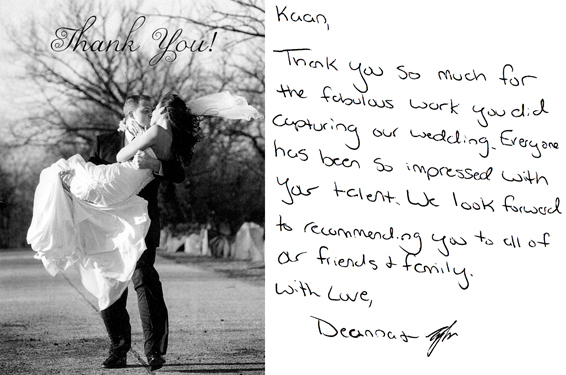 Thank You!
Kaan,
Thank you so much for
the fabulous work you did
capturing our wedding. Everyone
has been so impressed with
your talent. We look forward
to recommending you to all of
our friends & family.
With Love,
Deanna &